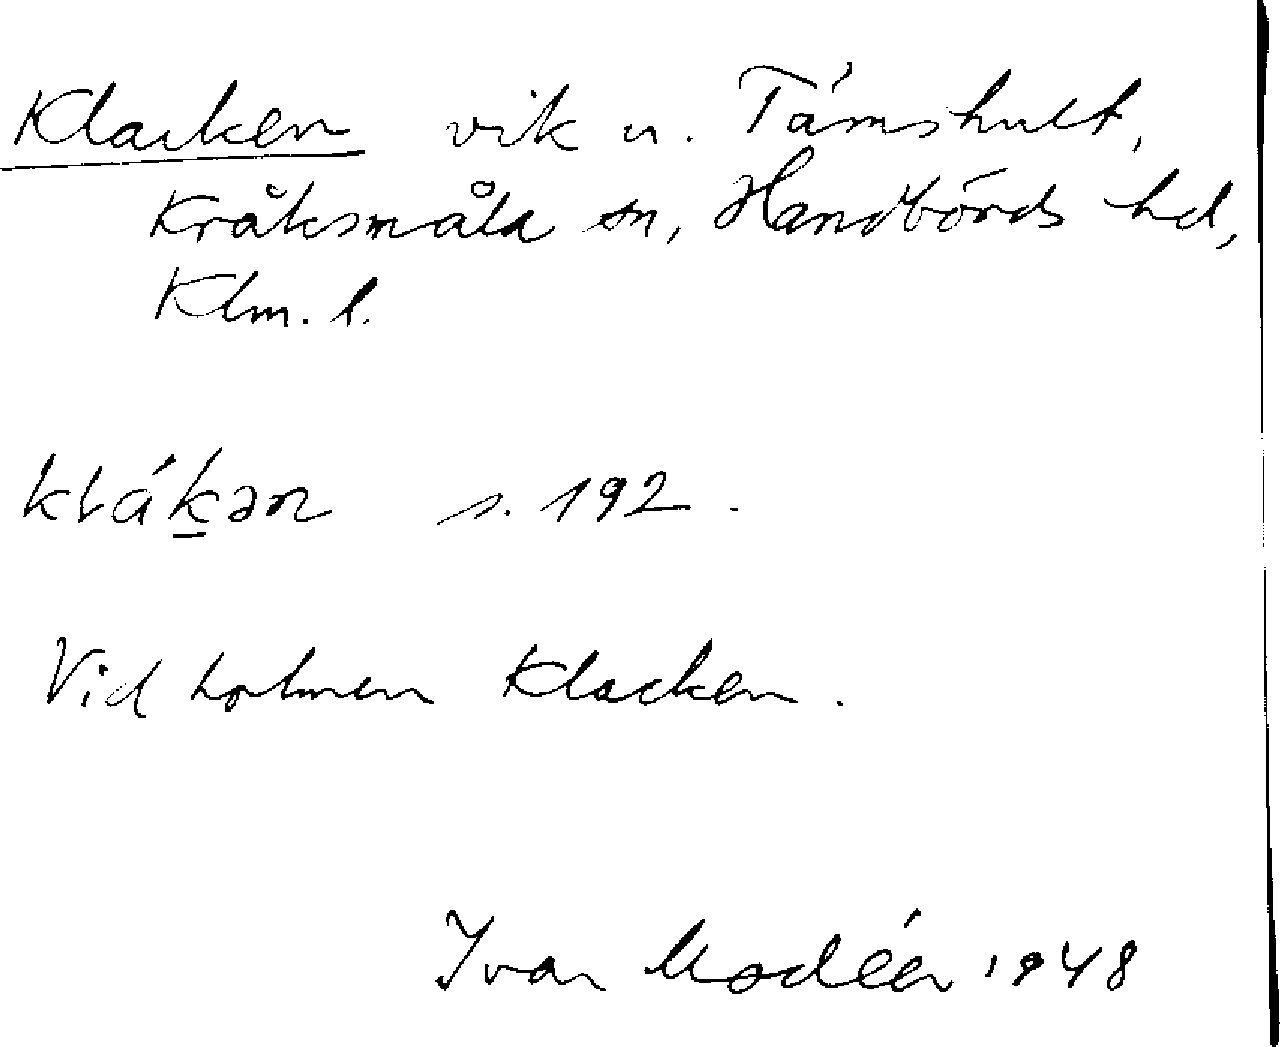 Klacken vik u. Tämshult,
Kråksmåla sn, Handbörds hd,
Klm. l.
kɫák̠ən s. 192.
Vid holmen Klacken.
Ivar Modéer 1948